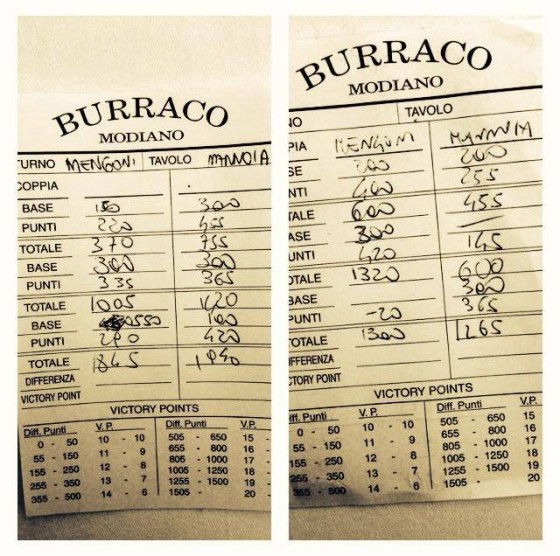 BURRACO
MODIANO
TURNO MENGONI TAVOLO MANNOIA
COPPIA
BASE 150 300
PUNTI 220 455
TOTALE 370 755
BASE 300 300
PUNTI 335 365
TOTALE 1005 1420
BASE 550 100
PUNTI 290 420
TOTALE 1845 1940
DIFFERENZA
VICTORY POINT
VICTORY POINTS
Diff. Punti V.P. Diff. Punti V.P.
0 - 50 10 - 10 505 - 650 15 -
55 - 150 11 - 9 655 - 800 16 -
155 - 250 12 - 8 805 - 1000 17 -
255 - 350 13 - 7 1005 - 1250 18 -
355 - 500 14 - 6 1255 - 1500 19 -
1505 - 20 -
BURRACO
MODIANO
NO TAVOLO
PIA MENGONI MANNOIA
200 200
NTI 400 255
TALE 600 455
BASE 300
PUNTI 420 145
TOTALE 1320 600
BASE 300
PUNTI -20 365
TOTALE 1300 1265
DIFFERENZA
VICTORY POINT
VICTORY POINTS
Diff. Punti V.P. Diff. Punti V.P.
0 - 50 10 - 10 505 - 650 15
55 - 150 11 - 9 655 - 800 16
155 - 250 12 - 8 805 - 1000 17
255 - 350 13 - 7 1005 - 1250 18
355 - 500 14 - 6 1255 - 1500 19
1505 - 20